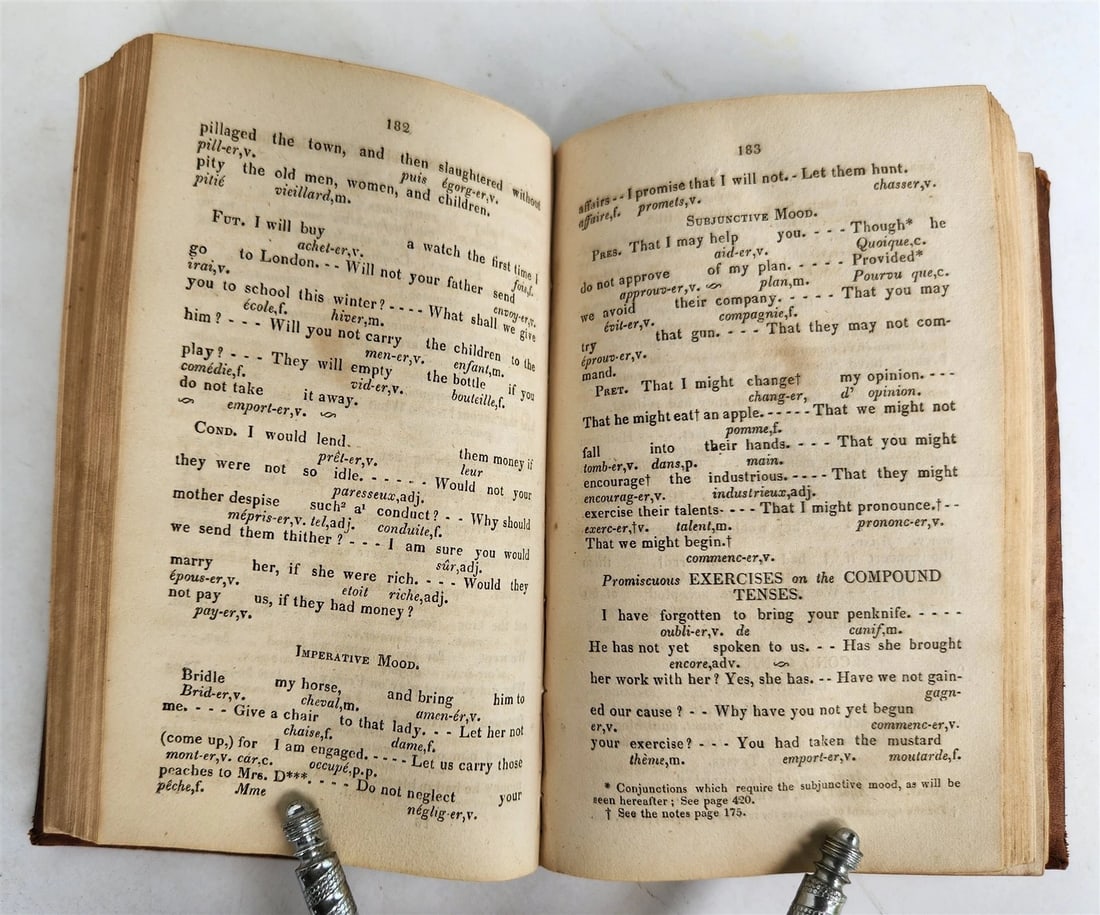 182
pillaged the town, and then slaughtered without
pill-er,v. puis égorg-er,v.
pity the old men, women, and children.
pitié vieillard,m.
FUT. I will buy a watch the first time I
achet-er,v. fois,f.
go to London. - - Will not your father send
irai,v. envoy-er,v.
you to school this winter? - - - - What shall we give
école,f. hiver,m.
him? - - - Will you not carry the children to the
men-er,v. enfant,m.
play? - - - They will empty the bottle if you
comédie,f. vid-er,v. bouteille,f.
do not take it away.
emport-er,v.
COND. I would lend them money if
prêt-er,v. leur
they were not so idle. - - - - - - Would not your
paresseux,adj.
mother despise such² a¹ conduct? - - Why should
mépris-er,v. tel,adj. conduite,f.
we send them thither? - - - I am sure you would
sûr,adj.
marry her, if she were rich. - - - Would they
épous-er,v. etoit riche,adj.
not pay us, if they had money?
pay-er,v.
IMPERATIVE MOOD.
Bridle my horse, and bring him to
Brid-er,v. cheval,m. amen-ér,v.
me. - - - - Give a chair to that lady. - - Let her not
chaise,f. dame,f.
(come up,) for I am engaged. - - - - Let us carry those
mont-er,v. car,c. occupé,p.p.
peaches to Mrs. D***. - - - - Do not neglect your
pêche,f. Mme néglig-er,v.
183
affairs - - I promise that I will not. - Let them hunt.
affaire,f. promets,v. chasser,v.
SUBJUNCTIVE MOOD.
PRES. That I may help you. - - - - Though* he
aid-er,v. Quoique,c.
do not approve of my plan. - - - - - Provided*
approuv-er,v. plan,m. Pourvu que,c.
we avoid their company. - - - - - That you may
évit-er,v. compagnie,f.
try that gun. - - - - That they may not com-
éprouv-er,v.
mand.
PRET. That I might change† my opinion. - - -
chang-er, d' opinion.
That he might eat† an apple. - - - - - - That we might not
pomme,f.
fall into their hands. - - - - That you might
tomb-er,v. dans,p. main.
encourage† the industrious. - - - - That they might
encourag-er,v. industrieux,adj.
exercise their talents- - - - That I might pronounce.† - -
exerc-er,†v. talent,m. prononc-er,v.
That we might begin.†
commenc-er,v.
Promiscuous EXERCISES on the COMPOUND
TENSES.
I have forgotten to bring your penknife. - - - -
oubli-er,v. de canif,m.
He has not yet spoken to us. - - Has she brought
encore,adv.
her work with her? Yes, she has. - - Have we not gain-
gagn-
ed our cause? - - Why have you not yet begun
er,v. commenc-er,v.
your exercise? - - - You had taken the mustard
thême,m. emport-er,v. moutarde,f.
* Conjunctions which require the subjunctive mood, as will be
seen hereafter; See page 420.
† See the notes page 175.